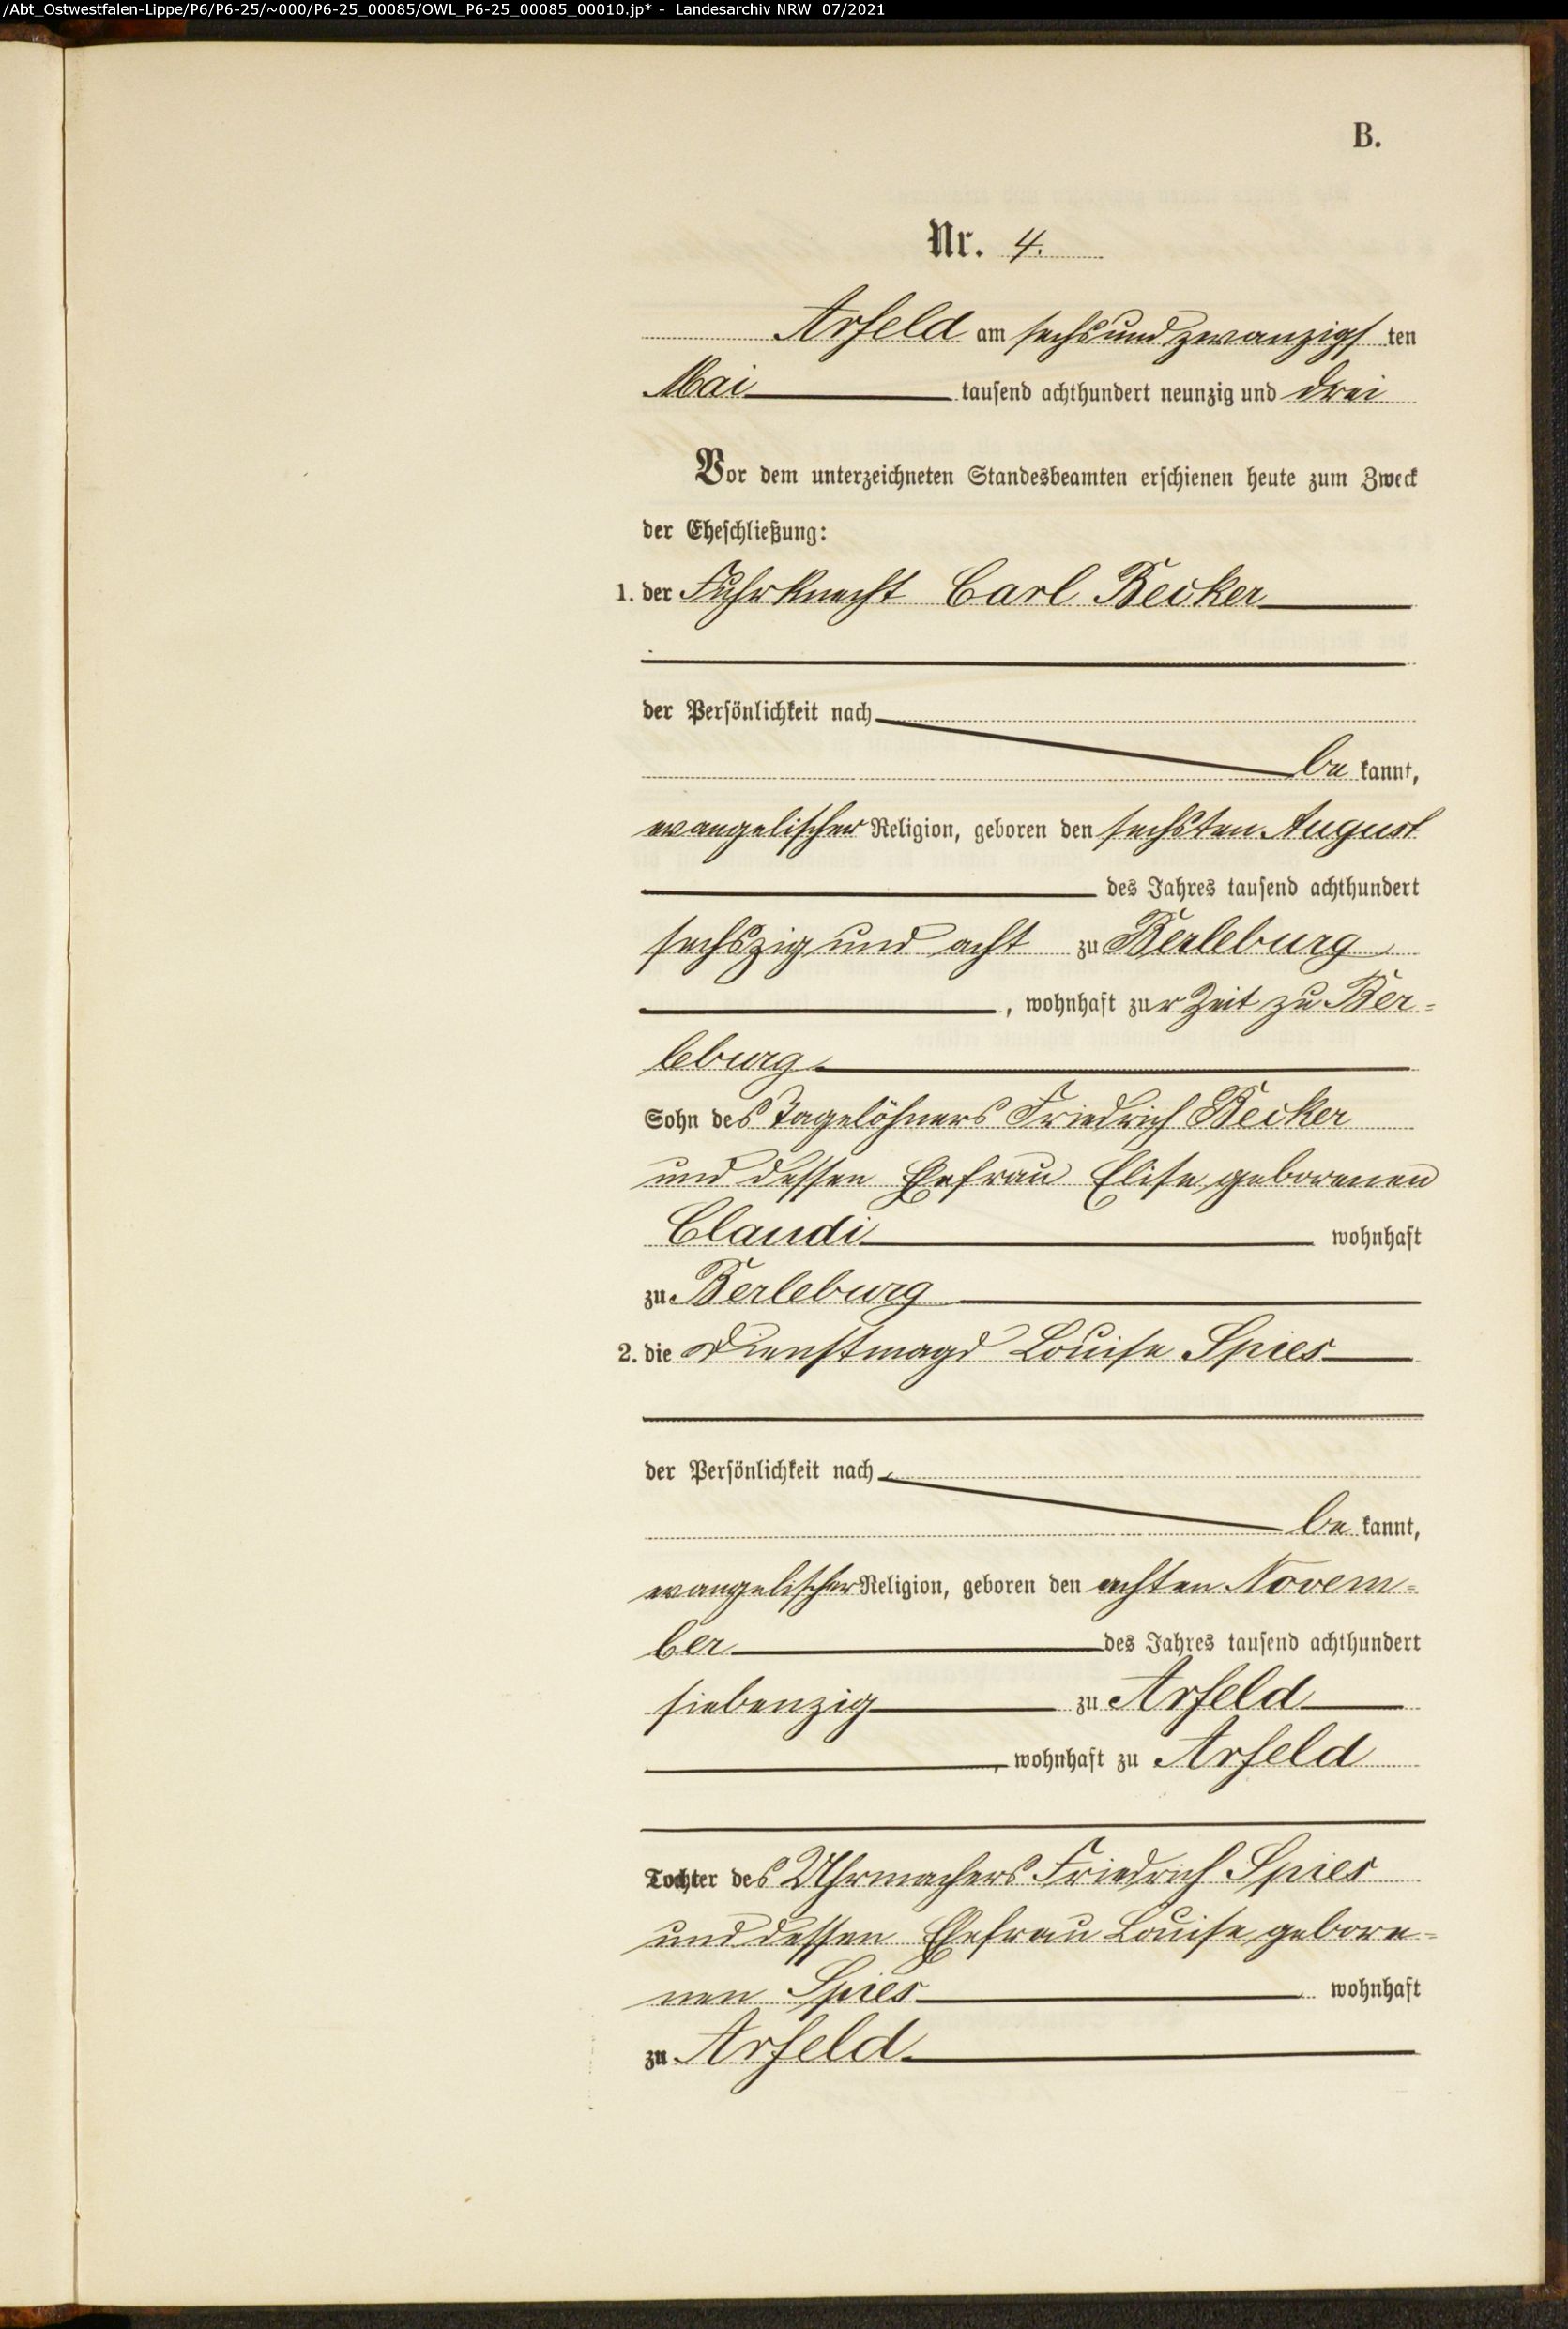 /Abt_Ostwestfalen-Lippe/P6/P6-25/~000/P6-25_00085/OWL_P6-25_00085_00010.jp* - Landesarchiv NRW 07/2021
B.
Nr. 4.
Arfeld am sechsundzwanzigsten
Mai tausend achthundert neunzig und drei
Vor dem unterzeichneten Standesbeamten erschienen heute zum Zweck
der Eheschließung:
1. der Fuhrknecht Carl Becker
der Persönlichkeit nach
bekannt,
evangelischer Religion, geboren den sechsten August
des Jahres tausend achthundert
sechszig und acht zu Berleburg
, wohnhaft zur Zeit zu Ber-
leburg
Sohn des Tagelöhners Friedrich Becker
und dessen Ehefrau Elise, geborenen
Claudi wohnhaft
zu Berleburg
2. die Dienstmagd Louise Spies
der Persönlichkeit nach
bekannt,
evangelischer Religion, geboren den achten Novem-
ber des Jahres tausend achthundert
siebenzig zu Arfeld
, wohnhaft zu Arfeld
Tochter des Uhrmachers Friedrich Spies
und dessen Ehefrau Louise, gebore-
nen Spies wohnhaft
zu Arfeld